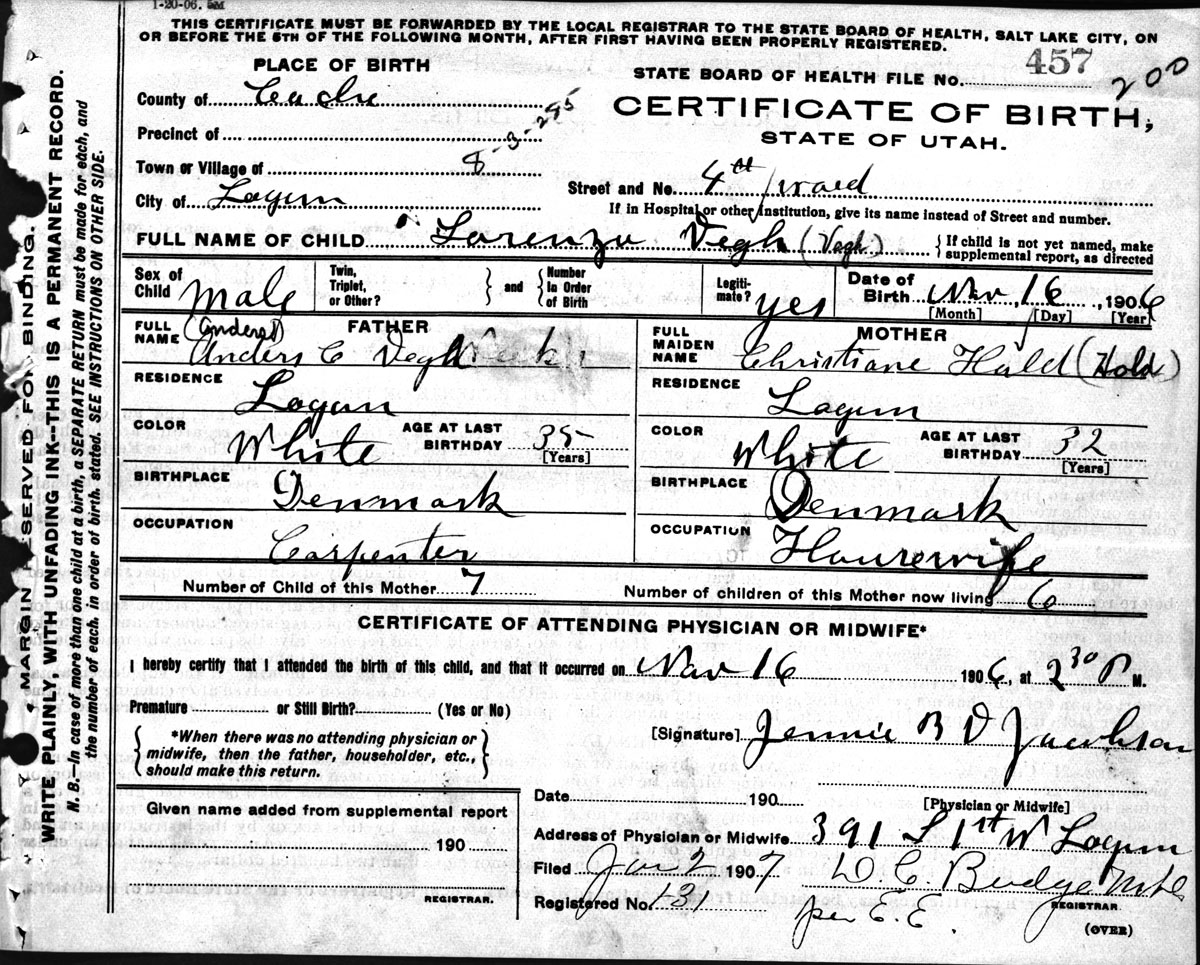 1-20-06. 5M
THIS CERTIFICATE MUST BE FORWARDED BY THE LOCAL REGISTRAR TO THE STATE BOARD OF HEALTH, SALT LAKE CITY, ON
OR BEFORE THE 5TH OF THE FOLLOWING MONTH, AFTER FIRST HAVING BEEN PROPERLY REGISTERED.
PLACE OF BIRTH
STATE BOARD OF HEALTH FILE No. 457
200
County of Cache
CERTIFICATE OF BIRTH,
STATE OF UTAH.
Precinct of
Town or Village of
City of Logan
Street and No. 4th ward
If in Hospital or other Institution, give its name instead of Street and number.
FULL NAME OF CHILD Lorenzo Vegh (Vegh)
If child is not yet named, make
supplemental report, as directed
Sex of Child Male
Twin, Triplet, or Other?
and
Number In Order of Birth
Legiti-mate? yes
Date of Birth Nov, 16, 1906
[Month] [Day] [Year]
FATHER
FULL NAME (Anders) Anders C Vegh
RESIDENCE
Logan
COLOR White
AGE AT LAST BIRTHDAY 35 [Years]
BIRTHPLACE Denmark
OCCUPATION
Carpenter
MOTHER
FULL MAIDEN NAME Christiane Hald (Hold)
RESIDENCE
Logan
COLOR White
AGE AT LAST BIRTHDAY 32 [Years]
BIRTHPLACE Denmark
OCCUPATION Housewife
Number of Child of this Mother 7
Number of children of this Mother now living 6
CERTIFICATE OF ATTENDING PHYSICIAN OR MIDWIFE*
I hereby certify that I attended the birth of this child, and that it occurred on Nov 16 1906, at 2 30 P M.
Premature or Still Birth? (Yes or No)
*When there was no attending physician or
midwife, then the father, householder, etc.,
should make this return.
[Signature] Jennie B D Jacobson
[Physician or Midwife]
Given name added from supplemental report
190
REGISTRAR.
Date 190
Address of Physician or Midwife 391 S 1st W Logan
Filed Jan 2 1907
D. C. Budge
Registered No. 131
REGISTRAR.
per E. E.
(OVER)
MARGIN RESERVED FOR BINDING.
WRITE PLAINLY, WITH UNFADING INK--THIS IS A PERMANENT RECORD.
N. B.—In case of more than one child at a birth, a SEPARATE RETURN must be made for each, and
the number of each, in order of birth, stated. SEE INSTRUCTIONS ON OTHER SIDE.